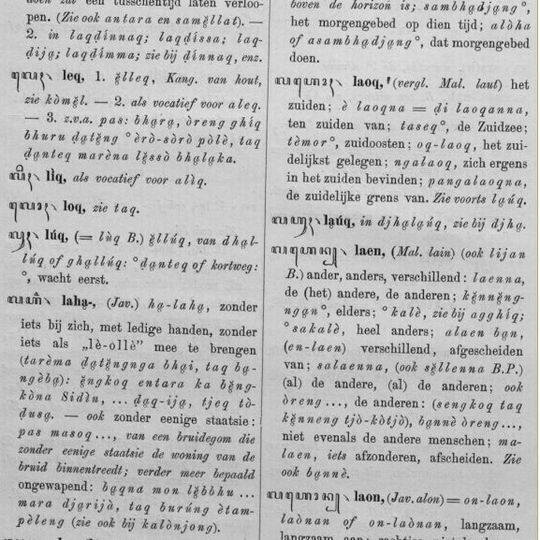 doen zal een tusschentijd laten verloo-
pen. (Zie ook antara en samĕllat). —
2. in laqḍínnaq; laqḍíssa; laq-
ḍija; laqḍímma; zie bij ḍínnaq, enz.
leq, 1. ĕlleq, Kang. van hout,
zie kòmĕl. — 2. als vocatief voor aleq.
— 3. z.v.a. pas: bhạrạ, òreng ghíq
bhuru ḍạtĕng °èrò-sòrò pòlè, taq
ḍạnteq marèna lĕssò bhạlạka.
lìq, als vocatief voor alìq.
loq, zie taq.
lúq, (= lùq B.) ĕllúq, van dhạl-
lúq of ghạllúq: °ḍạnteq of kortweg:
°, wacht eerst.
lahạ-, (Jav.) hạ-lahạ, zonder
iets bij zich, met ledige handen, zonder
iets als „lè-ollè” mee te brengen
(tarèma ḍạtĕngnga bhại, taq bạ-
ngèbạ): ĕngkoq entara ka bĕng-
kòna Sidìn, ... ḍạq-ijạ, tjeq tò-
ḍusạ. — ook zonder eenige staatsie:
pas masoq ..., van een bruidegom die
zonder eenige staatsie de woning van de
bruid binnentreedt; verder meer bepaald
ongewapend: bạqna mon lĕbbhu ...
mara djạrijạ, taq burúng ètam-
pèleng (zie ook bij kalònjong).
boven de horizon is; sambhạdjạng °,
het morgengebed op dien tijd; alòha
of asambhạdjạng °, dat morgengebed
doen.
laoq, (vergl. Mal. laut) het
zuiden; è laoqna = ḍi laoqanna,
ten zuiden van; taseq °, de Zuidzee;
tèmor °, zuidoosten; oq-laoq, het zui-
delijkst gelegen; ngalaoq, zich ergens
in het zuiden bevinden; pangalaoqna,
de zuidelijke grens van. Zie voorts lạúq.
lạúq, in djhạlạúq, zie bij djhạ.
laen, (Mal. lain) (ook lijan
B.) ander, anders, verschillend: laenna,
de (het) andere, de anderen; kĕnnĕng-
ngạn °, elders; °kalè, zie bij agghíq;
°sakalè, heel anders; alaen bạn,
(en-laen) verschillend, afgescheiden
van; salaenna, (ook sĕllenna B.P.)
(al) de andere, (al) de anderen; ook
òreng ..., de anderen: (sengkoq taq
kĕnneng tjò-kòtjò), bạnnè òreng ...,
niet evenals de andere menschen; ma-
laen, iets afzonderen, afscheiden. Zie
ook bạnnè.
laon, (Jav. alon) = on-laon,
laònan of on-laònan, langzaam,